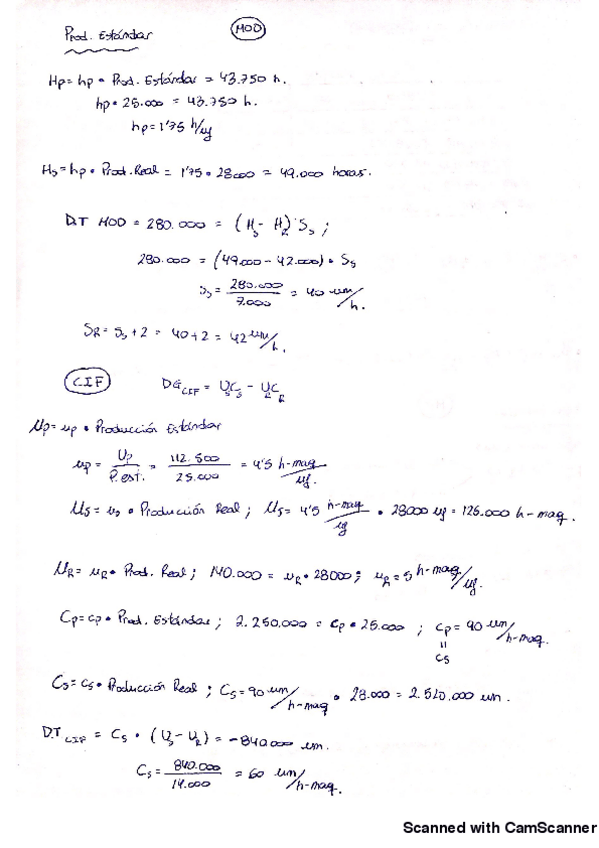 Prod. Estándar
MOD
Hp = hp • Prod. Estándar = 43.750 h.
hp • 25.000 = 43.750 h.
hp = 1'75 h/uf
Hs = hp • Prod. Real = 1'75 • 28000 = 49.000 horas.
D.T MOD = 280.000 = (Hs - HR) Ss ;
280.000 = (49.000 - 42.000) • Ss
Ss = 280.000/7.000 = 40 um/h.
SR = Ss + 2 = 40 + 2 = 42 um/h.
CIF
DG CIF = UsCs - URCR
Up = up • Producción Estándar
up = Up/P.est. = 112.500/25.000 = 4'5 h-maq/uf.
Us = us • Producción Real ; Us = 4'5 h-maq/uf • 28000 uf = 126.000 h-maq.
UR = uR • Prod. Real ; 140.000 = uR • 28000 ; uR = 5 h-maq/uf.
Cp = cp • Prod. Estándar ; 2.250.000 = cp • 25.000 ; cp = 90 um/h-maq.
=
cs
Cs = cs • Producción Real ; Cs = 90 um/h-maq • 28.000 = 2.520.000 um.
D.T CIF = Cs • (Us - UR) = -840.000 um.
Cs = 840.000/14.000 = 60 um/h-maq.
Scanned with CamScanner